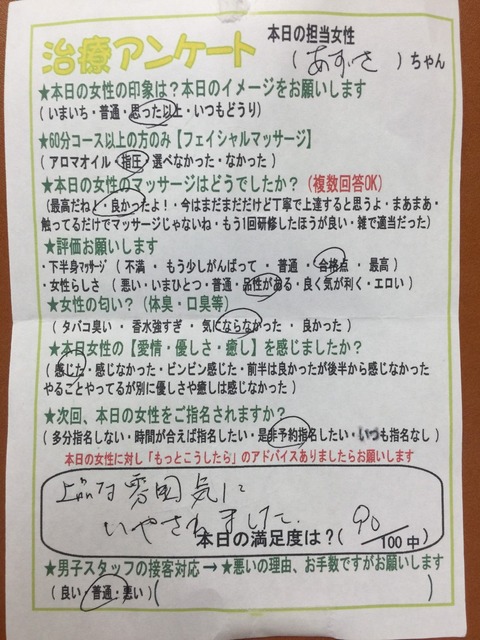 治療アンケート
本日の担当女性
( あずさ )ちゃん
★本日の女性の印象は?本日のイメージをお願いします
(いまいち・普通・思った以上・いつもどうり)
★60分コース以上の方のみ【フェイシャルマッサージ】
(アロマオイル・指圧・選べなかった・なかった)
★本日の女性のマッサージはどうでしたか?(複数回答OK)
(最高だね!・良かったよ!・今はまだまだだけど丁寧で上達すると思うよ・まあまあ・
触ってるだけでマッサージじゃないね・もう1回研修したほうが良い・雑で適当だった)
★評価お願いします
・下半身マッサージ(不満・もう少しがんばって・普通・合格点・最高)
・女性らしさ(悪い・いまひとつ・普通・品性がある・良く気が利く・エロい)
★女性の匂い?(体臭・口臭等)
(タバコ臭い・香水強すぎ・気にならなかった・良かった)
★本日女性の【愛情・優しさ・癒し】を感じましたか?
(感じた・感じなかった・ビンビン感じた・前半は良かったが後半から感じなかった
やることやってるが別に優しさや癒しは感じなかった)
★次回、本日の女性をご指名されますか?
(多分指名しない・時間が合えば指名したい・是非予約指名したい・いつも指名なし)
本日の女性に対し「もっとこうしたら」のアドバイスありましたらお願いします
上品な雰囲気に
いやされました.
本日の満足度は?( 90/100中)
★男子スタッフの接客対応→★悪いの理由、お手数ですがお願いします
(良い・普通・悪い)( )